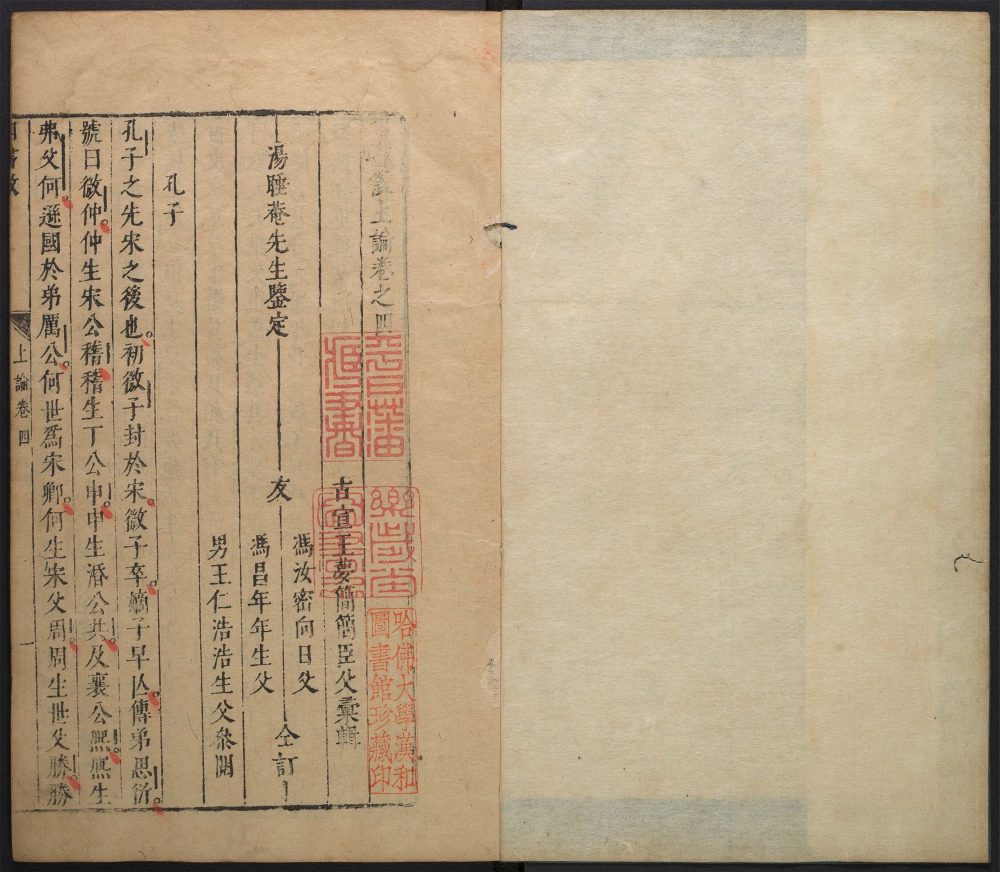 徵上論卷之四
古宣王夢簡簡臣父彙輯
湯睡菴先生鑒定
友
馮汝密向日父
馮昌年年生父
仝訂
男王仁浩浩生父叅閱
孔子
孔子之先宋之後也初微子封於宋微子卒嫡子早亾傳弟思衍
號曰微仲仲生宋公稽稽生丁公申申生湣公共及襄公熈熈生
弗父何遜國於弟厲公何世爲宋卿何生宋父周周生世父勝勝
上論卷四
一
哈佛大學漢和
圖書館珍藏印
藏書